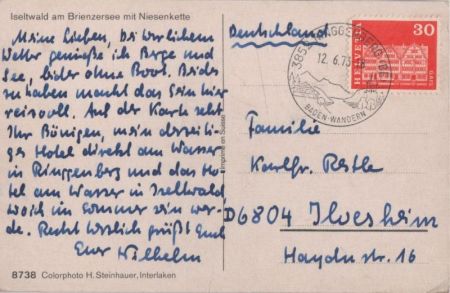 Iseltwald am Brienzersee mit Niesenkette
Meine Lieben, bei herrlichem
Wetter genieße ich Berge und
See, leider ohne Boot. Beides
zu haben macht das Sein hier
reizvoll. Auf der Karte seht
Ihr Bönigen, mein derzeiti-
ges Hotel direkt am Wasser
in Ringgenberg und das Ho-
tel am Wasser in Iseltwald
wo ich im Sommer sein wer-
de. Recht herzlich grüßt Euch
Euer Wilhelm
8738 Colorphoto H. Steinhauer, Interlaken
Imprimé en Suisse
Deutschland
3852 RINGGENBERG
12.6.73
BADEN-WANDERN
HELVETIA
30
Familie
Karlfr. Röstle
D6804 Ilvesheim
Haydnstr. 16